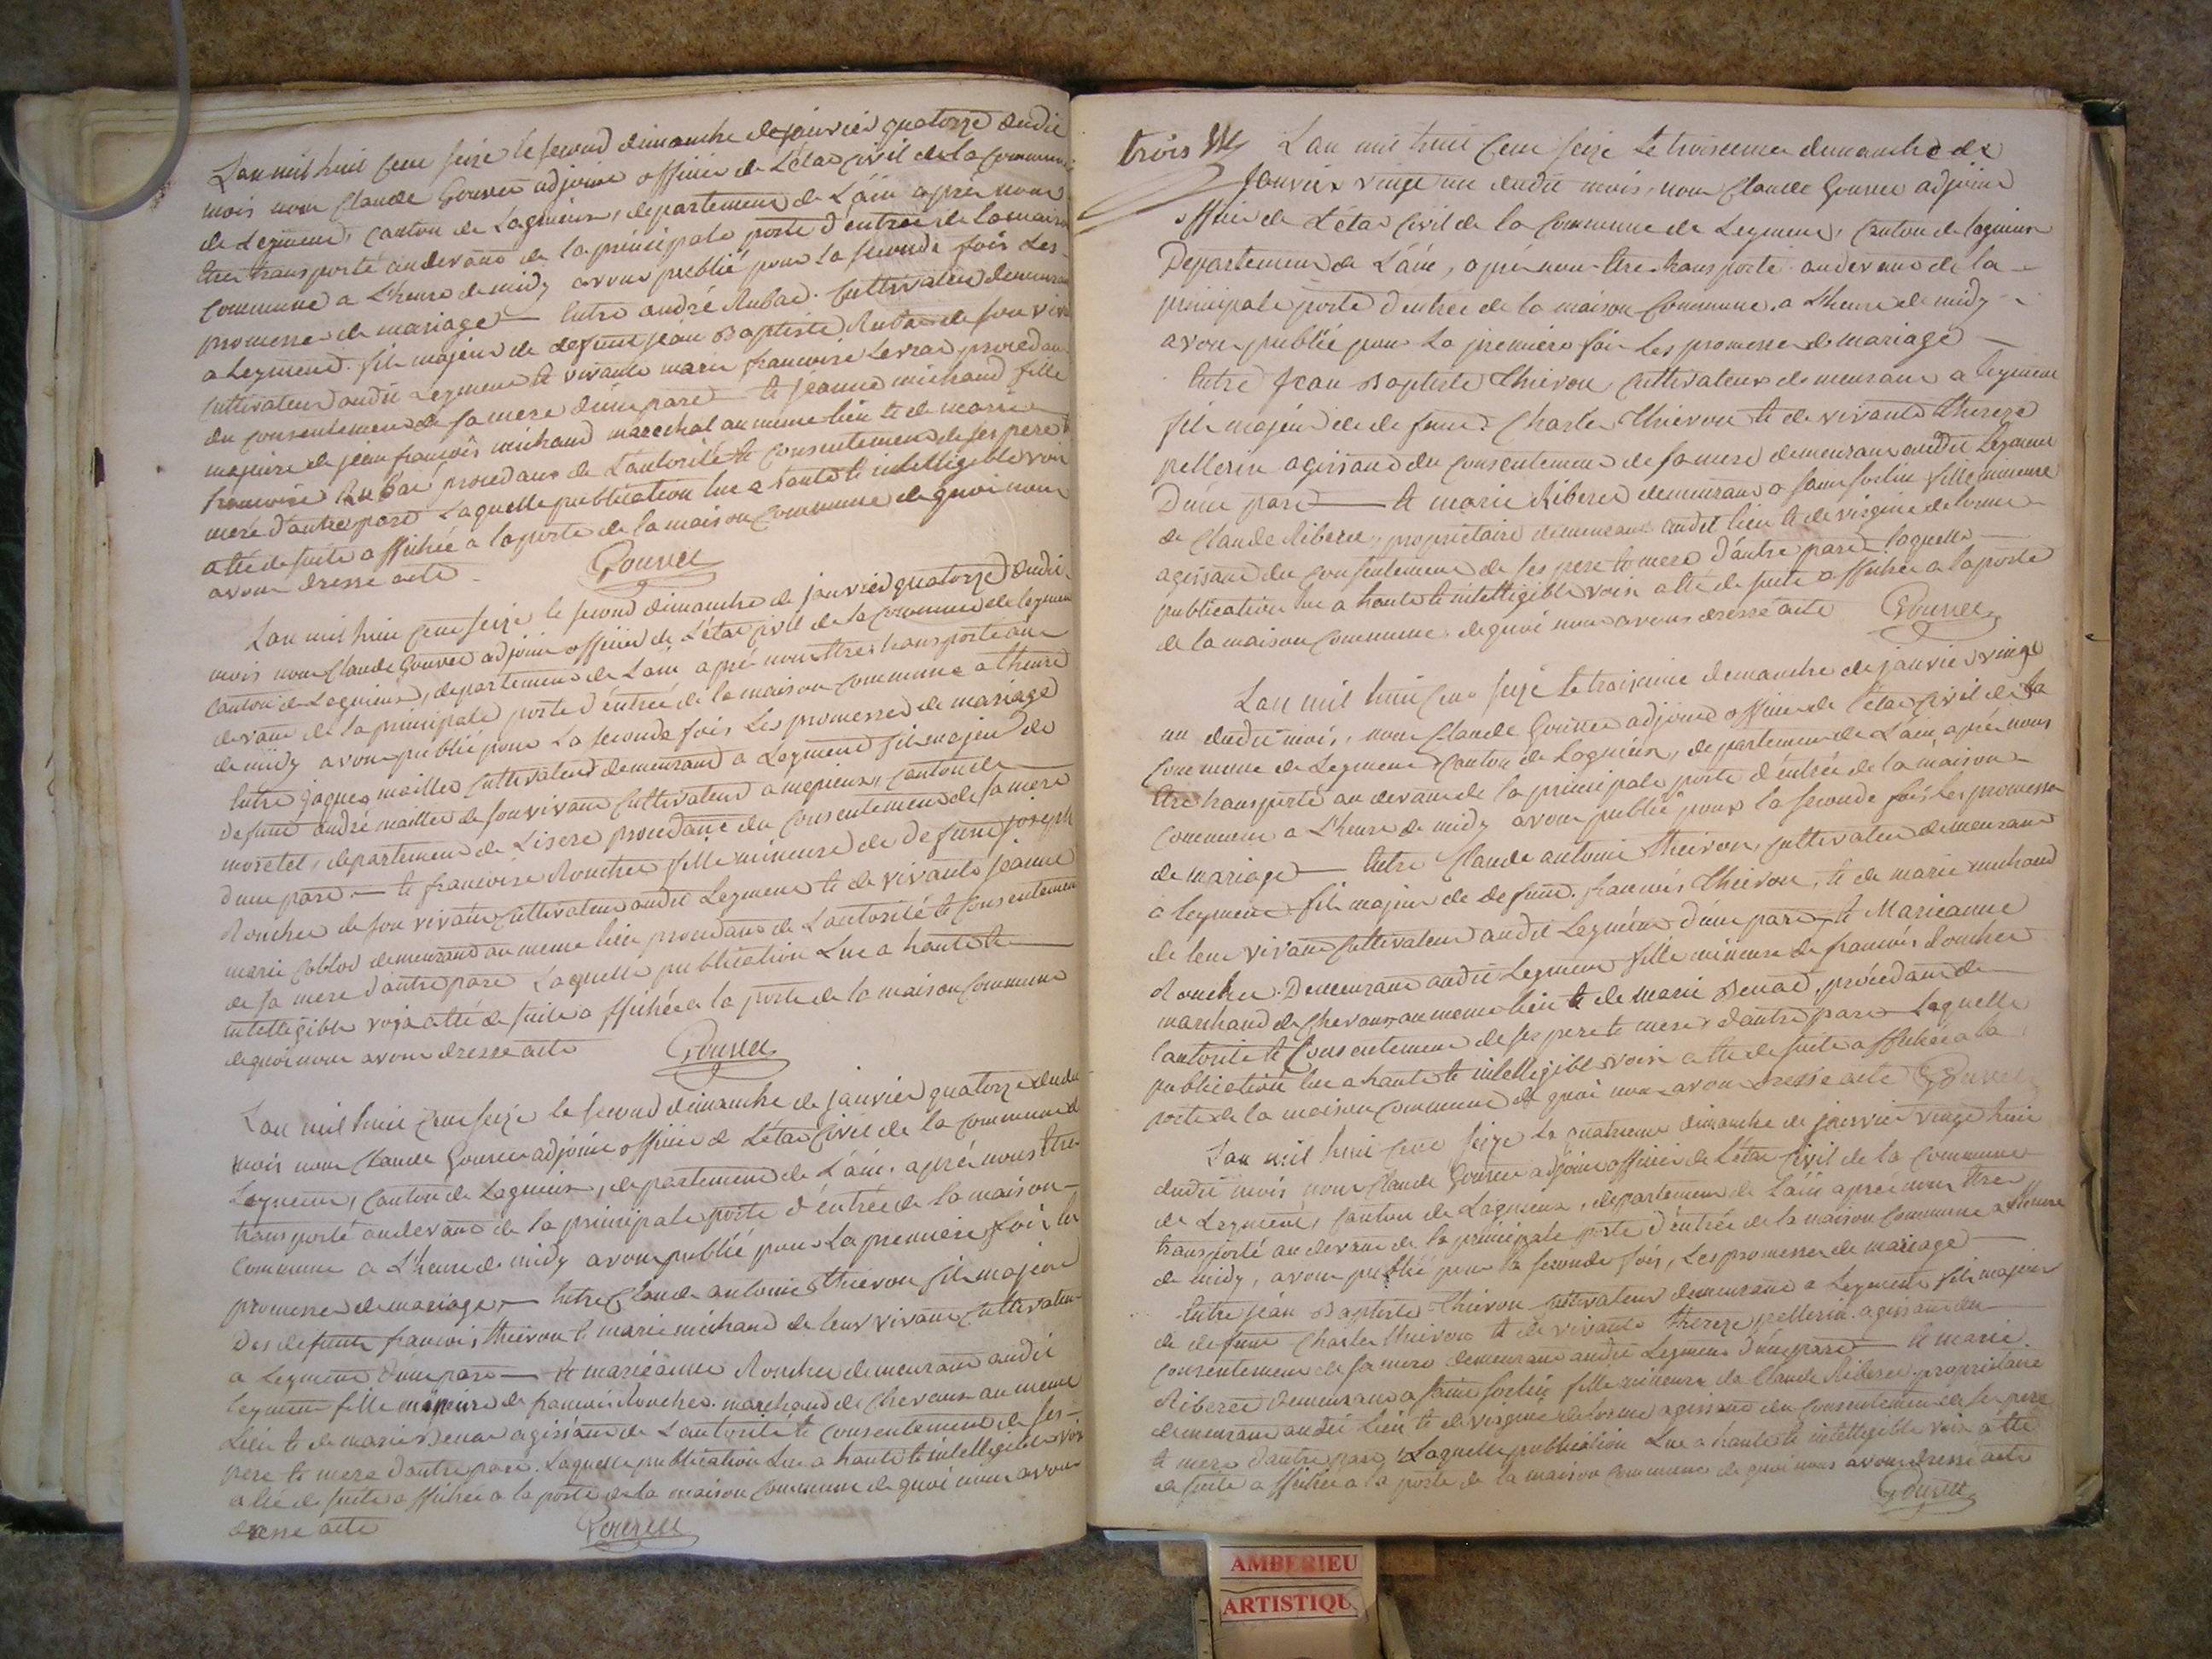 L'an mil huit cent seize le second dimanche de janvier quatorze dudit
mois nous Claude Gouvee adjoint officier de L'état civil de la commune
de Leyment, canton de Lagnieux, departement de L'ain après nous
être transporté audevant de la principale porte d'entrée de la maison
commune a L'heure de midy avons publié pour la seconde fois Les
promesse de mariage — Entre andré Aubac cultivateur demeurant
a Leyment fils majeur de defunt jean Baptiste Aubac de son vivant
cultivateur audit Leyment et vivante marie francoise procedant
du consentement de sa mere d'une part — et jeanne michaud fille
majeure de jean françois michaud marechal au meme lieu et de marie
francoise procedant de L'autorité et consentement de ses pere et
mere d'autre part Laquelle publication lue a haute et intelligible voix
a été de suite affichée a la porte de la maison commune de quoi nous
avons dressé acte
Gouvee
L'an mil huit cent seize le second dimanche de janvier quatorze dudit
mois nous Claude Gouvee adjoint officier de L'état civil de la commune de leyment
canton de Lagnieux, departement de L'ain après nous être transporté au
devant de la principale porte d'entrée de la maison commune a l'heure
de midy avons publié pour La seconde fois Les promesses de mariage
Entre jaques maillet cultivateur demeurant a Leyment fils majeur de
defunt andré maillet de son vivant cultivateur a mepieux, canton de
morestel, departement de L'isere procedant du consentement de sa mere
d'une part — et francoise Roucher fille mineure de defunt joseph
Roucher de son vivant cultivateur audit Leyment et de vivante jeanne
marie demeurant au meme lieu procedant de L'autorité et consentement
de sa mere d'autre part Laquelle publication Lue a haute et
intelligible voix a été de suite affichée a la porte de la maison commune
de quoi nous avons dressé acte
Gouvee
L'an mil huit cent seize le second dimanche de janvier quatorze dudit
mois nous Claude Gouvee adjoint officier de L'état civil de la commune de
Leyment, canton de Lagnieux, departement de L'ain, après nous être
transporté audevant de la principale porte d'entrée de la maison
commune a L'heure de midy avons publié pour La premiere fois les
promesses de mariage — Entre Claude antoine thievon fils majeur
des defunts francois thievon et marie michaud de leur vivant cultivateur
a Leyment d'une part — et marieanne Roucher demeurant audit
leyment fille mineure de francois Roucher marchand de chevaux au meme
Lieu et de marie Benac agissant de L'autorité et consentement de ses
pere et mere d'autre part. Laquelle publication Lue a haute et intelligible voix
a été de suite affichée a la porte de la maison commune de quoi nous avons
dressé acte
Gouvee
trois
L'an mil huit cent seize le troisieme dimanche de
janvier vingt un dudit mois, nous Claude Gouvee adjoint
officier de L'état civil de la commune de Leyment, canton de lagnieux
Departement de L'ain, après nous être transporté audevant de la
principale porte d'entrée de la maison commune a L'heure de midy
avons publié pour La premiere fois Les promesses de mariage
Entre jean Baptiste thievon cultivateur demeurant a leyment
fils majeur de defunt Charles thievon et de vivante thereze
pellerin agissant du consentement de sa mere demeurant audit Leyment
D'une part — et marie Riberee demeurant a saint fille mineure
de Claude Riberee, proprietaire demeurant audit lieu et de virginie
agissant du consentement de ses pere et mere d'autre part laquelle
publication lue a haute et intelligible voix a été de suite affichée a la porte
de la maison commune de quoi nous avons dressé acte
Gouvee
L'an mil huit cent seize le troisieme dimanche de janvier vingt
un dudit mois, nous Claude Gouvee adjoint officier de l'état civil de la
commune de Leyment canton de Lagnieux, departement de L'ain après nous
être transporté au devant de la principale porte d'entrée de la maison
commune a L'heure de midy avons publié pour la seconde fois les promesses
de mariage — Entre Claude antoine thievon, cultivateur demeurant
a leyment fils majeur de defunt francois thievon, et de marie michaud
de leur vivant cultivateur audit Leyment d'une part, et Marieanne
Roucher Demeurant audit Leyment fille mineure de francois Roucher
marchand de chevaux au meme lieu et de marie Benac, procedant de
l'autorité et consentement de ses pere et mere d'autre part Laquelle
publication lue a haute et intelligible voix a été de suite affichée a la
porte de la maison commune de quoi nous avons dressé acte Gouvee
L'an mil huit cent seize Le quatrieme dimanche de janvier vingt huit
dudit mois nous Claude Gouvee adjoint officier de L'état civil de la commune
de Leyment, canton de Lagnieux, departement de L'ain après nous être
transporté au devant de la principale porte d'entrée de la maison commune a L'heure
de midy, avons publié pour la seconde fois, Les promesses de mariage
Entre jean Baptiste thievon cultivateur demeurant a Leyment fils majeur
de defunt Charles thievon et de vivante thereze pellerin agissant du
consentement de sa mere demeurant audit Leyment d'une part — et marie
Riberee demeurant a saint fille mineure de Claude Riberee proprietaire
demeurant audit lieu et de virginie agissant du consentement de ses pere
et mere d'autre part Laquelle publication Lue a haute et intelligible voix a été
de suite affichée a la porte de la maison commune de quoi nous avons dressé acte
Gouvee
AMBERIEU
ARTISTIQU